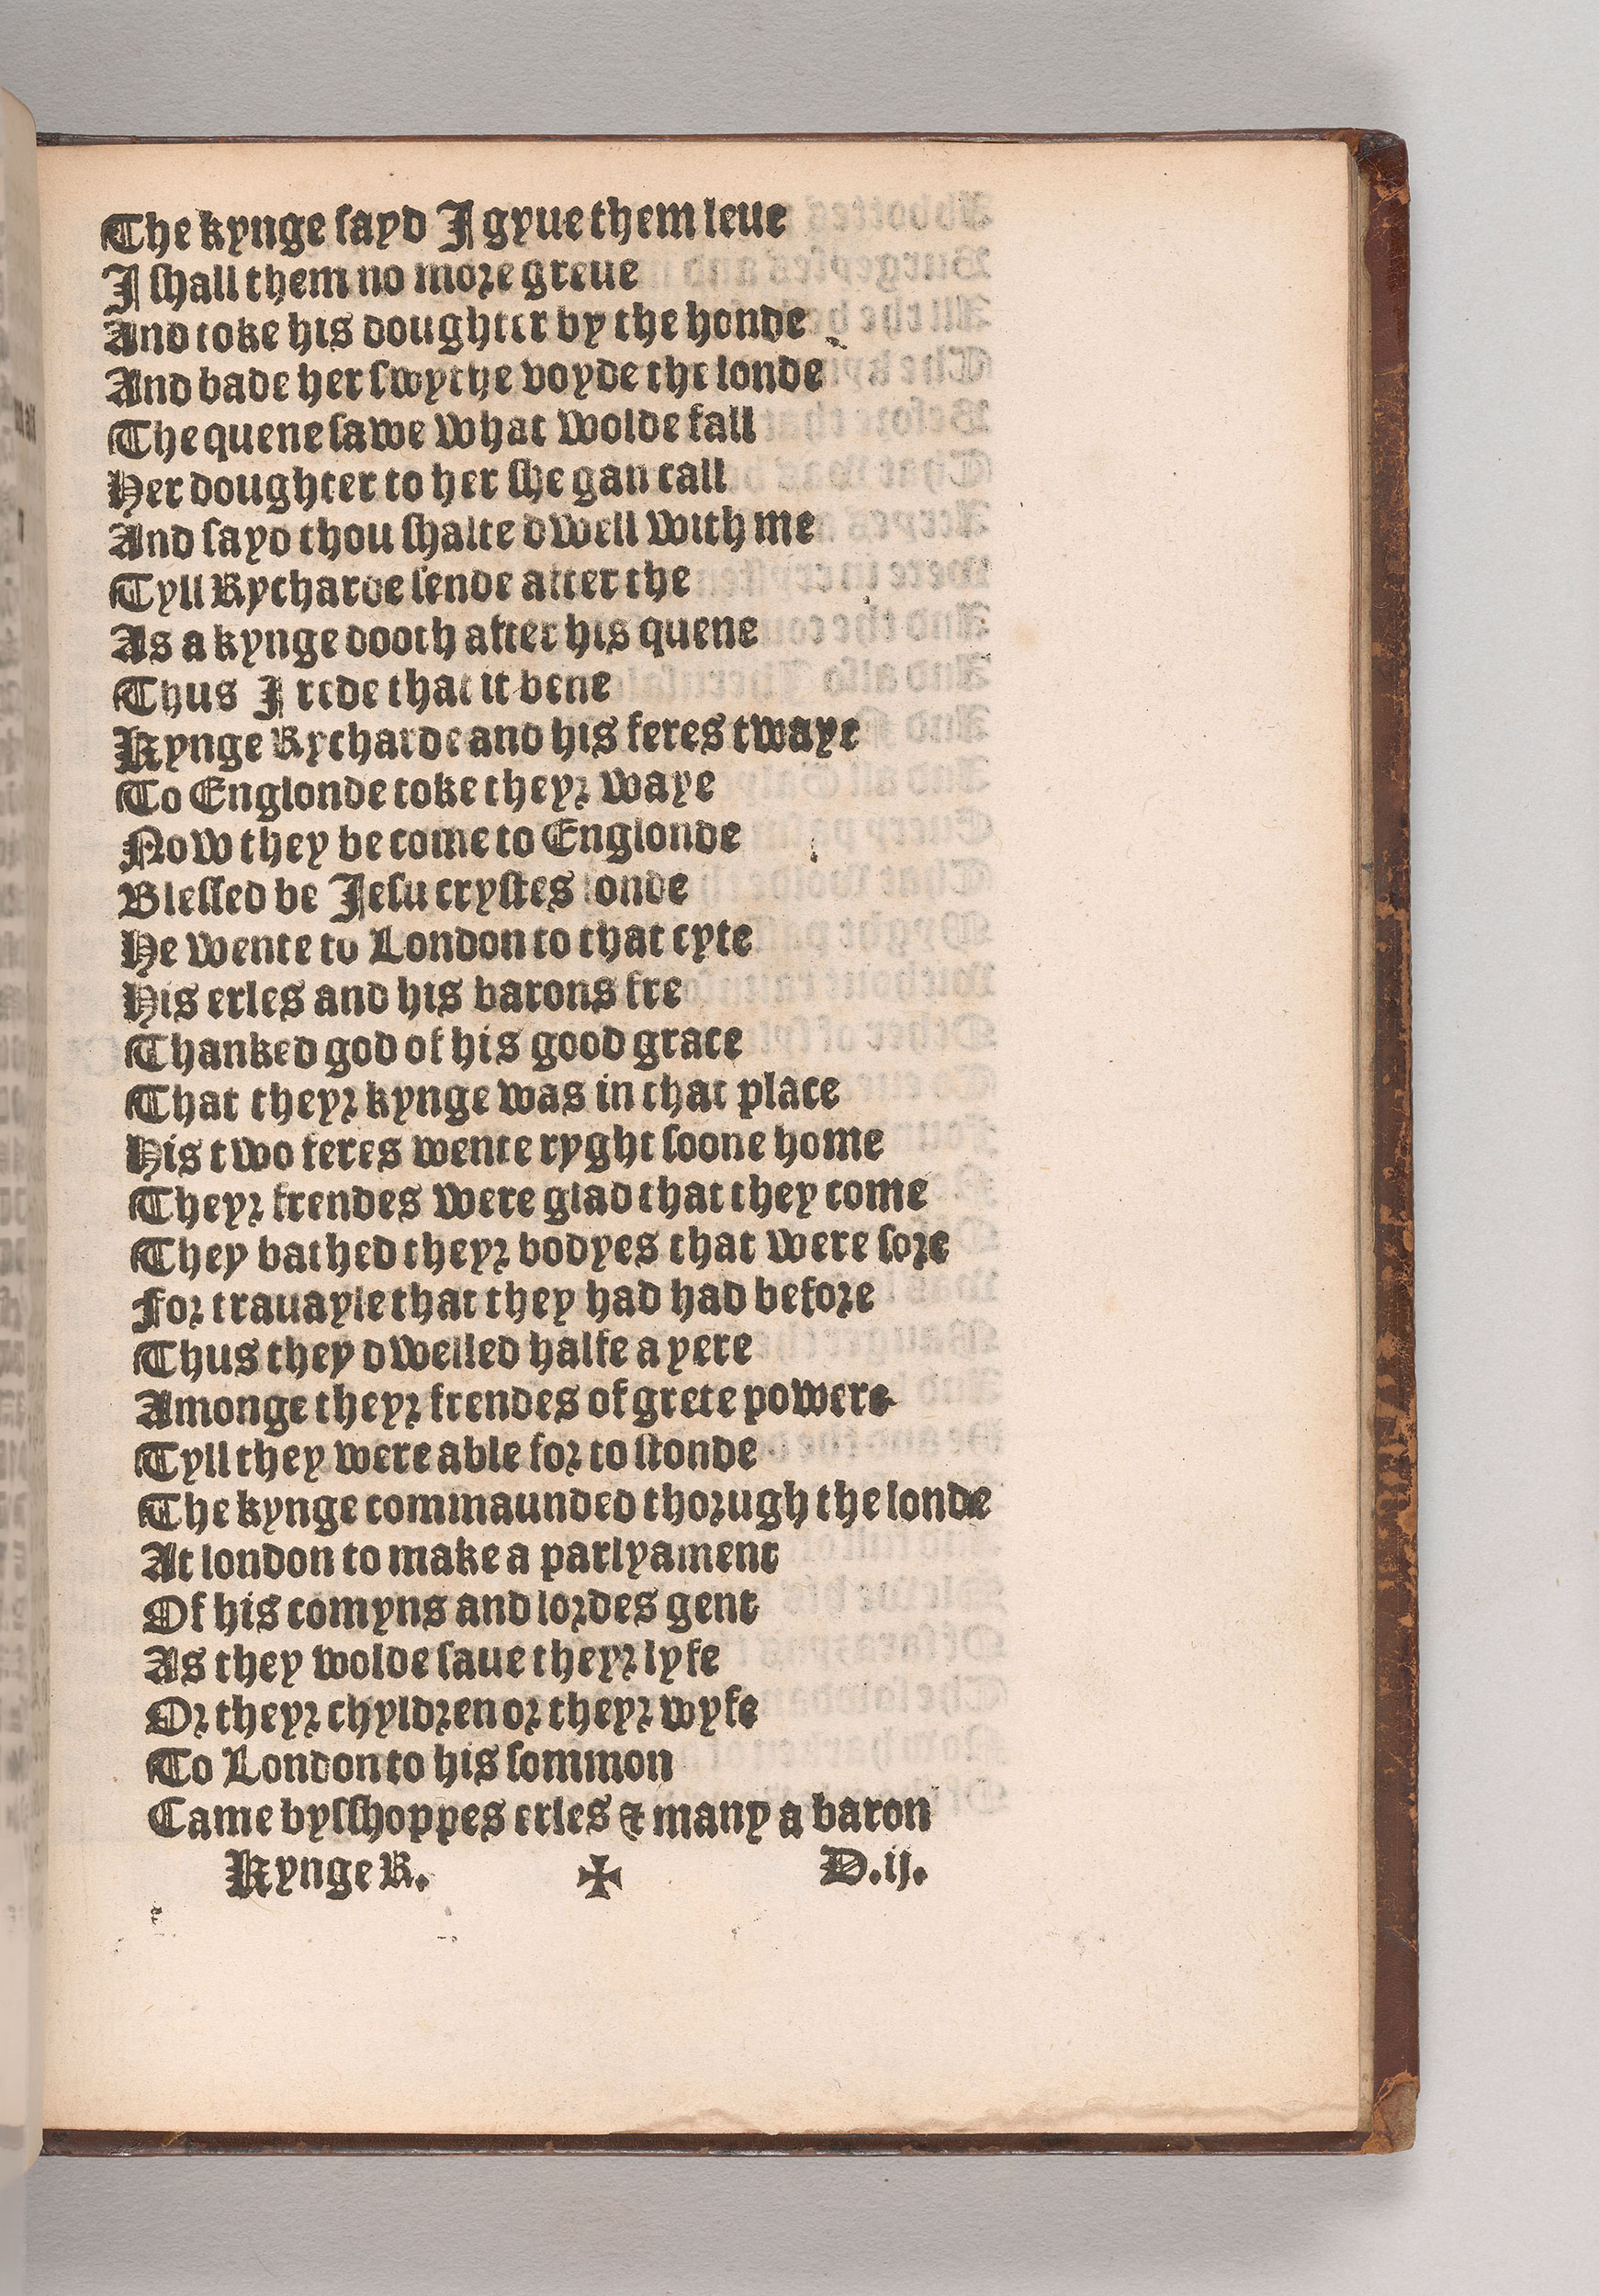 The kynge sayd I gyue them leue
I shall them no more greue
And toke his doughter by the honde
And bade her swythe voyde the londe
The quene sawe what wolde fall
Her doughter to her she gan call
And sayd thou shalte dwell with me
Tyll Rycharde sende after the
As a kynge dooth after his quene
Thus I rede that it bene
Kynge Rycharde and his feres twaye
To Englonde toke theyr waye
Now they be come to Englonde
Blessed be Jesu crystes sonde
He wente to London to that cyte
His erles and his barons fre
Thanked god of his good grace
That theyr kynge was in that place
His two feres wente ryght soone home
Theyr frendes were glad that they come
They bathed theyr bodyes that were sore
For trauayle that they had had before
Thus they dwelled halfe a yere
Amonge theyr frendes of grete powere
Tyll they were able for to stonde
The kynge commaunded thorugh the londe
At london to make a parlyament
Of his comyns and lordes gent
As they wolde saue theyr lyfe
Or theyr chyldren or theyr wyfe
To London to his sommon
Came bysshoppes erles & many a baron
Kynge R. ✠ D.ij.